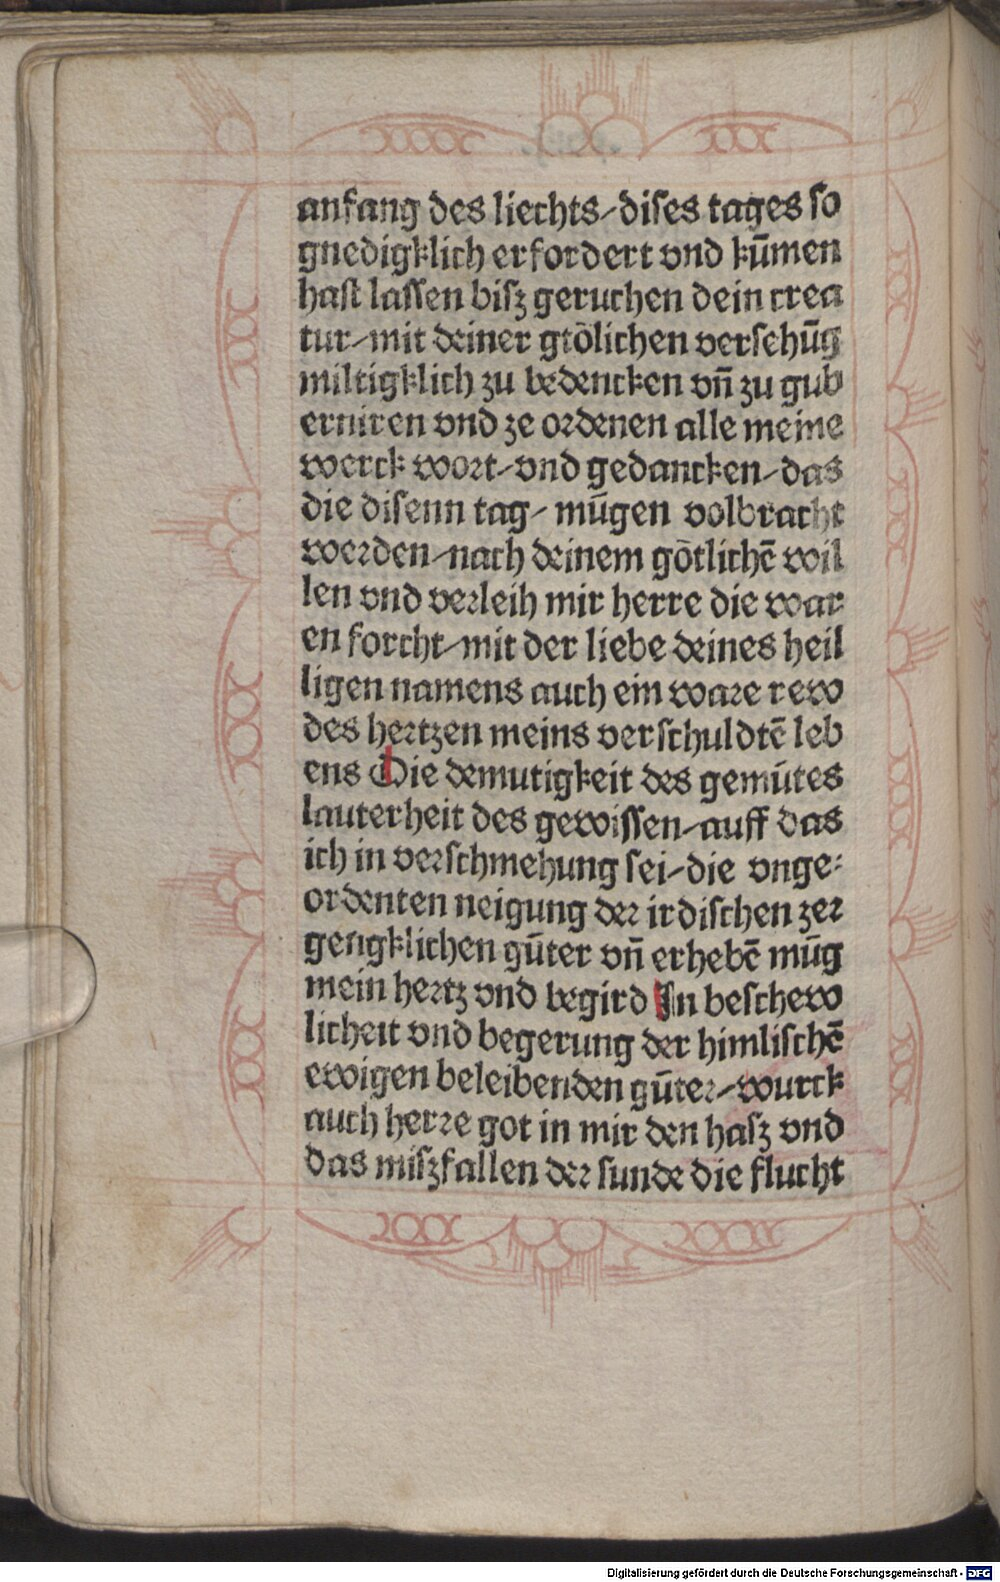 anfang des liechts⸗diſes tages ſo
gnedigklich erfordert vnd kūmen
haſt laſſen biſz geruchen dein crea
tur⸗mit deiner gtōlichen verſehūg
miltigklich zu bedencken vn̄ zu gub
erniren vnd ze ordenen alle meine
werck wort⸗vnd gedancken⸗das
die diſenn tag⸗ mūgen volbracht
werden⸗nach deinem gōtlichē wil
len vnd verleih mir herre die war
en forcht⸗mit der liebe deines heil
ligen namens auch ein ware rew
des hertzen meins verſchuldtē leb
ens Die demutigkeit des gemūtes
lauterheit des gewiſſen⸗auff das
ich in verſchmehung ſei⸗die vnge⸗
ordenten neigung der irdiſchen zer
gengklichen gūter vn̄ erhebē mūg
mein hertz vnd begird In beſchew
licheit vnd begerung der himliſchē
ewigen beleibenden gūter⸗wurck
auch herre got in mir den haſz vnd
das miſzfallen der ſunde die flucht
Digitalisierung gefördert durch die Deutsche Forschungsgemeinschaft - DFG